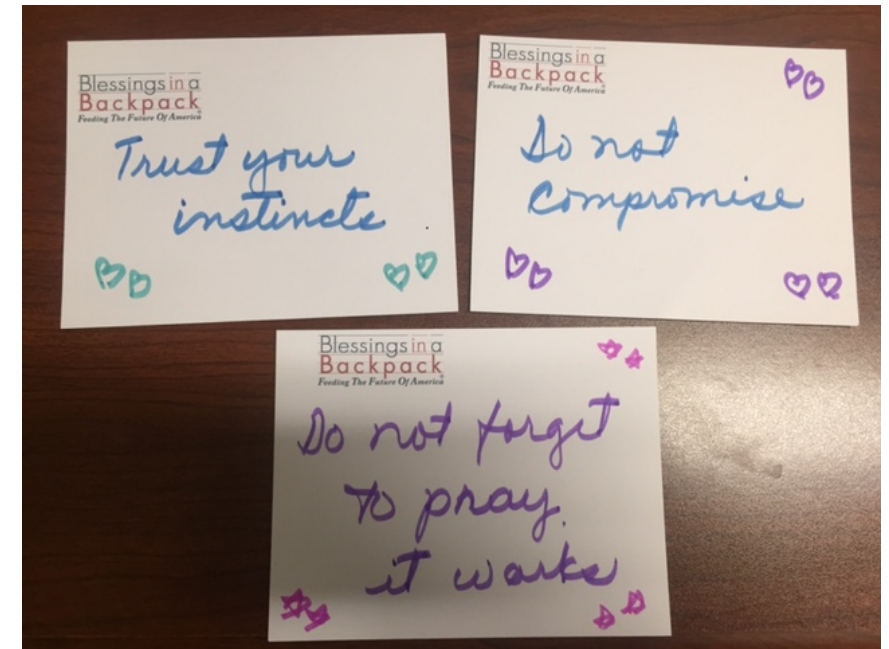 Blessings in a
Backpack
Feeding The Future Of America
Trust your
instincts
Blessings in a
Backpack
Feeding The Future Of America
Do not
Compromise
Blessings in a
Backpack
Feeding The Future Of America
Do not forget
to pray.
it works